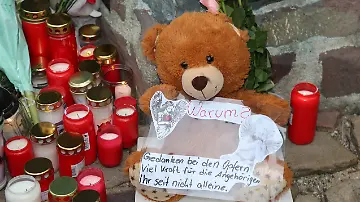 Warum?
Gedanken bei den Opfern
Viel Kraft für die Angehörigen
Ihr seit nicht alleine.